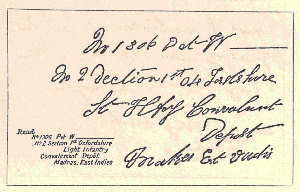 No 1306 Pet W
No 2 Section 1st O4 Foxlshire
Lt Hfofy Convalunt
Depot
Mrakes Est Vudis
Read:
No 1306 Pet W
No 2 Section 1st Oxfordshire
Light Infantry
Convalescent Depôt
Madras, East Indies